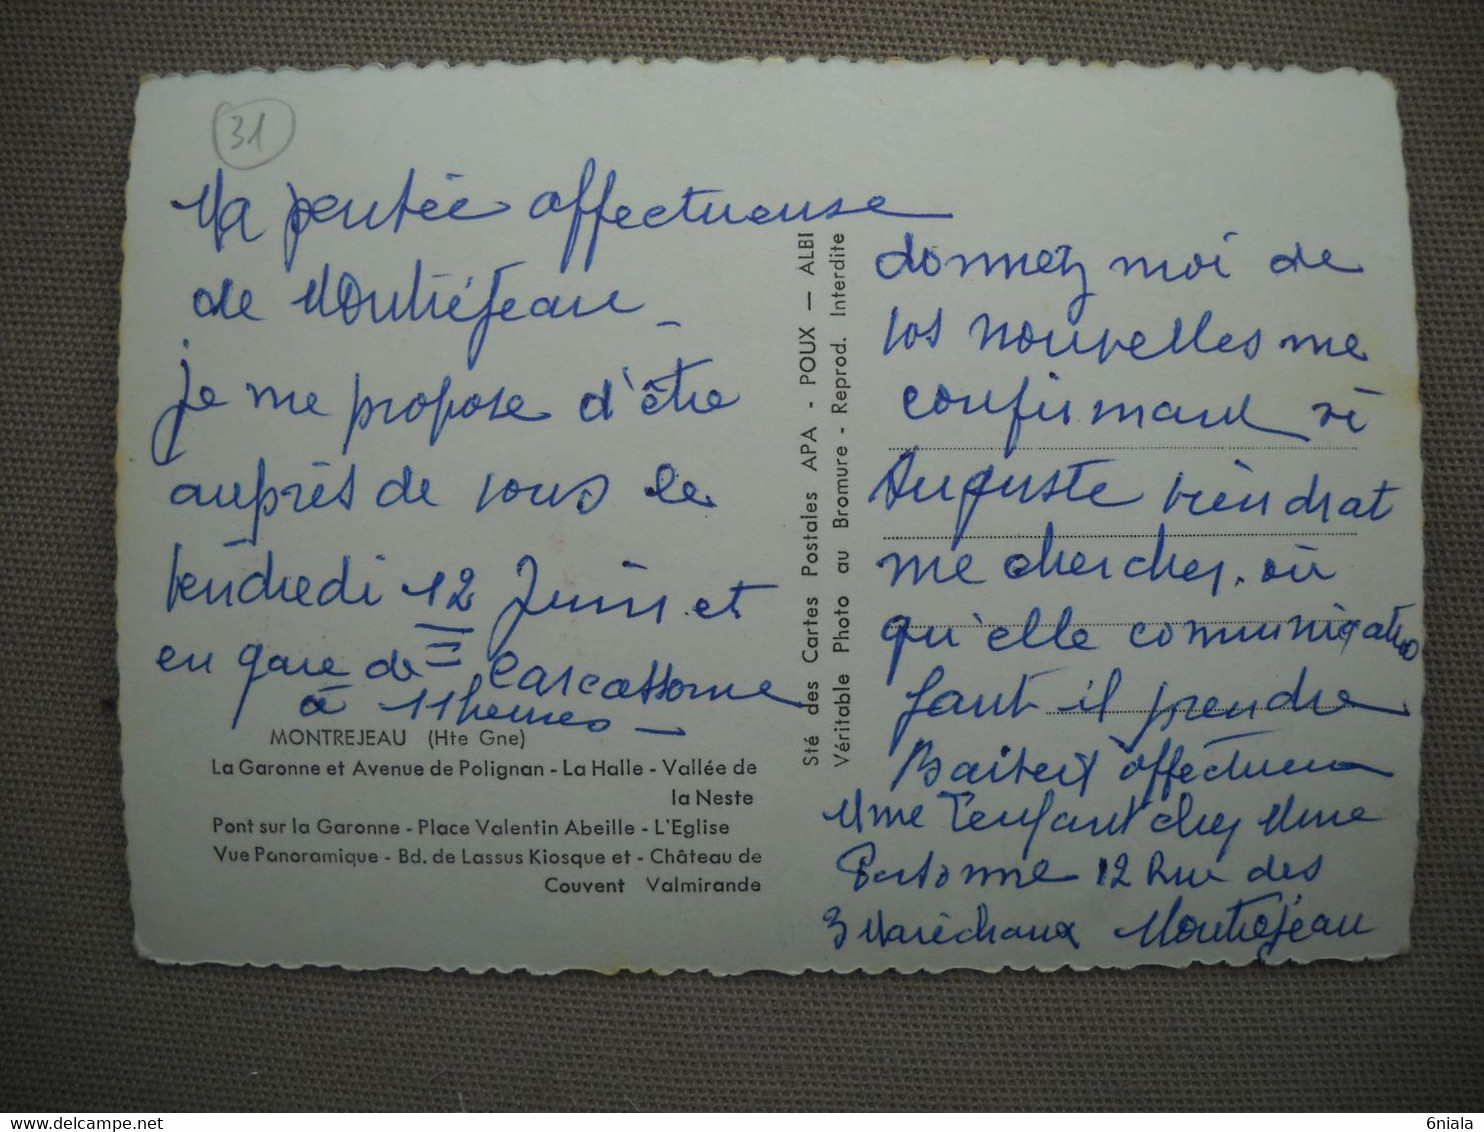 31
Ma pensée affectueuse
de Montréjeau _
je me propose d'être
auprès de vous le
Vendredi 12 Juin et
en gare de Carcassonne
à 11 heures _
MONTREJEAU (Hte Gne)
La Garonne et Avenue de Polignan - La Halle - Vallée de
la Neste
Pont sur la Garonne - Place Valentin Abeille - L'Eglise
Vue Panoramique - Bd. de Lassus Kiosque et - Château de
Couvent Valmirande
Sté des Cartes Postales APA - POUX — ALBI
Véritable Photo au Bromure - Reprod. Interdite
donnez moi de
vos nouvelles me
confirmant si
Auguste viendrat
me chercher, où
qu'elle comunication
faut-il prendre
Baisers affectueux
Mme Tenfant chez Mme
12 Rue des
3 Maréchaux Montrejeau
6niala